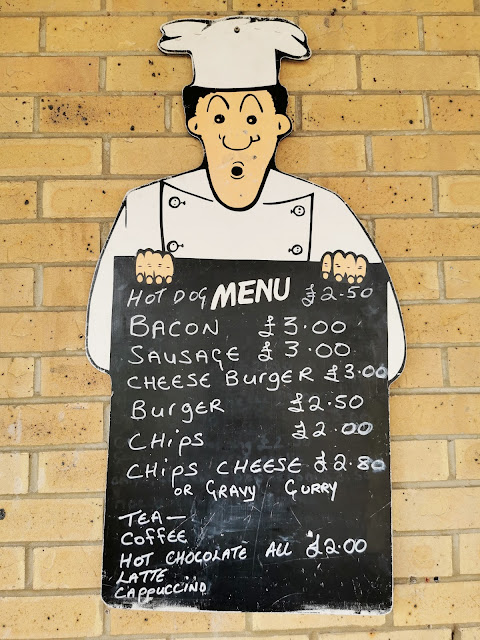 HOT DOG MENU £2.50
BACON £3.00
SAUSAGE £3.00
CHEESE BURGER £3.00
BURGER £2.50
CHIPS £2.00
CHIPS CHEESE £2.80
OR GRAVY CURRY
TEA —
COFFEE
HOT CHOCOLATE ALL £2.00
LATTE
CAPPUCCINO